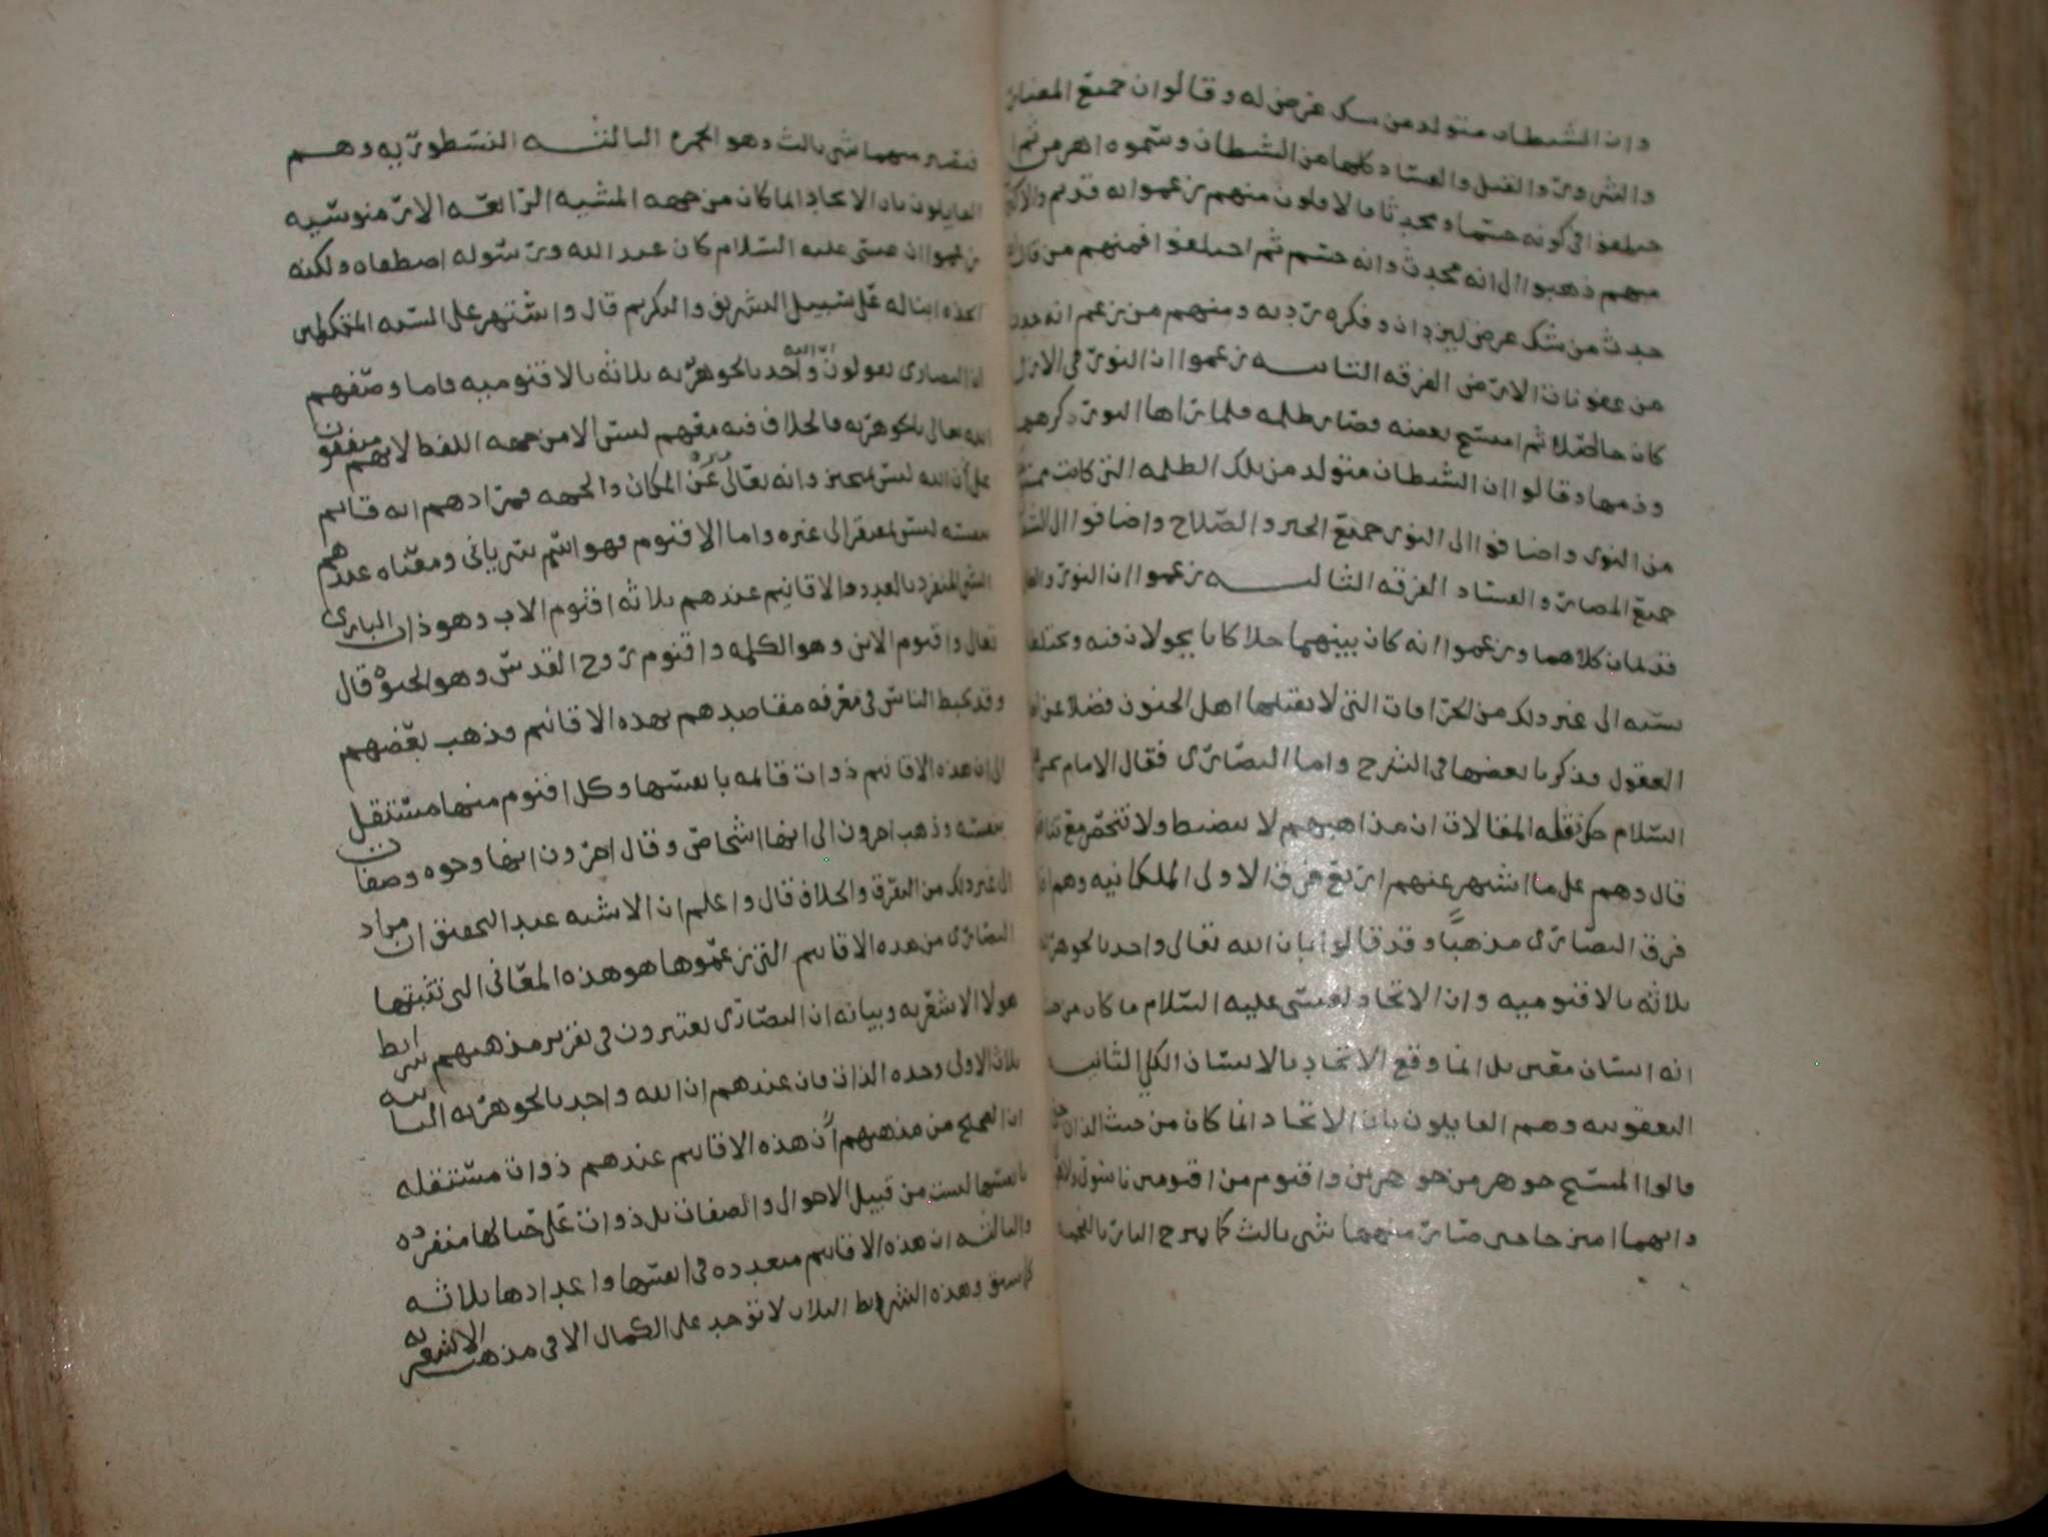 وان الشيطان متولد من شك عرض له وقالوا ان جميع المضار
والشرور والقتل والفساد كلها من الشيطان وسموه اهرمن ثم ا
ختلفوا في كونه جسما ومحدثا فالاولون منهم زعموا انه قديم والاكثر
منهم ذهبوا الى انه محدث وانه جسم ثم اختلفوا فمنهم من قال
حدث من شك عرض ليزدان وفكره ردیه ومنهم من زعم انه حدث
من عفونات الارض الفرقه الثانيه زعموا ان النور في الازل
كان خالصا ثم امتسخ بعضه فصار ظلمه فلما راها النور كرهها
وذمها وقالوا ان الشيطان متولد من تلك الظلمه التي كانت
من النور واضافوا الى النور جميع الخير والصلاح واضافوا الى
جميع المضار والفساد الفرقه الثالثه زعموا ان النور
قديمان كلاهما وزعموا انه كان بينهما خلا كانا يجولان فيه
الى غير ذلك من الخرافات التي لا يقبلها اهل الجنون فضلا عن
العقول وذكرنا بعضها في الشرح واما النصارى فقال الامام
السلام حكى نقله المقالات ان مذاهبهم لا تنضبط ولا تنحصر مع
قال وهم على ما اشتهر عنهم اربع فرق الاولى الملكانيه وهم
فرق النصارى مذهبا وقد قالوا بان الله تعالى واحد بالجوهريه
ثلاثه بالاقنوميه وان الاتحاد لعيسى عليه السلام ما كان من
انه انسان معين بل انما وقع الاتحاد بالانسان الكلي الثانيه
اليعقوبيه وهم القايلون بان الاتحاد انما كان من حيث الذات
قالوا المسيح جوهر من جوهرين واقنوم من اقنومين ناسوتي
وانهما امتزجا حتى صار منهما شي ثالث كما يمزج النار بالفحم
فيصير منهما شي ثالث وهو الجمره الثالثه النسطوريه وهم
القايلون بان الاتحاد انما كان من جهه المشيه الرابعه الارمنوسيه
زعموا ان عيسى عليه السلام كان عبد الله ورسوله اصطفاه ولكنه
اتخذه ابنا له على سبيل التشريف والتكريم قال واشتهر على السنه المتكلمين
ان النصارى يقولون ان الله واحد بالجوهريه ثلاثه بالاقنوميه فاما وصفهم
الله تعالى بالجوهريه فالخلاف فيه معهم ليس الا من جهه اللفظ لانهم متفقون
على ان الله ليس بمتحيز وانه تعالى عن المكان والجهه فمرادهم انه قايم
بنفسه ليس مفتقرا الى غيره واما الاقنوم فهو اسم سرياني ومعناه عندهم
الشي المنفرد بالعدد والاقانيم عندهم ثلاثه اقنوم الاب وهو ذات البارى
تعالى واقنوم الابن وهو الكلمه واقنوم روح القدس وهو الحيوه قال
وقد خبط الناس في معرفه مقاصدهم بهذه الاقانيم فذهب بعضهم
الى ان هذه الاقانيم ذوات قائمه بانفسها وكل اقنوم منها مستقل
بنفسه وذهب اخرون الى انها اشخاص وقال اخرون انها وجوه وصفات
الى غير ذلك من التفرق والخلاف قال واعلم ان الاشبه عند التحقيق ان مراد
النصارى من هذه الاقانيم التي زعموها هو هذه المعاني التي تثبتها
هولا الاشعريه وبيانه ان النصارى يعتبرون في تقرير مذهبهم شرايط
ثلاث الاولى وحده الذات فان عندهم ان الله واحد بالجوهريه الثانيه
ان الصحيح من مذهبهم ان هذه الاقانيم عندهم ذوات مستقله
بانفسها ليست من قبيل الاحوال والصفات بل ذوات على حيالها منفرده
والثالثه ان هذه الاقانيم متعدده في انفسها واعدادها ثلاثه
كما سبق وهذه الشرايط الثلاث لا توجد على الكمال الا في مذهب الاشعريه